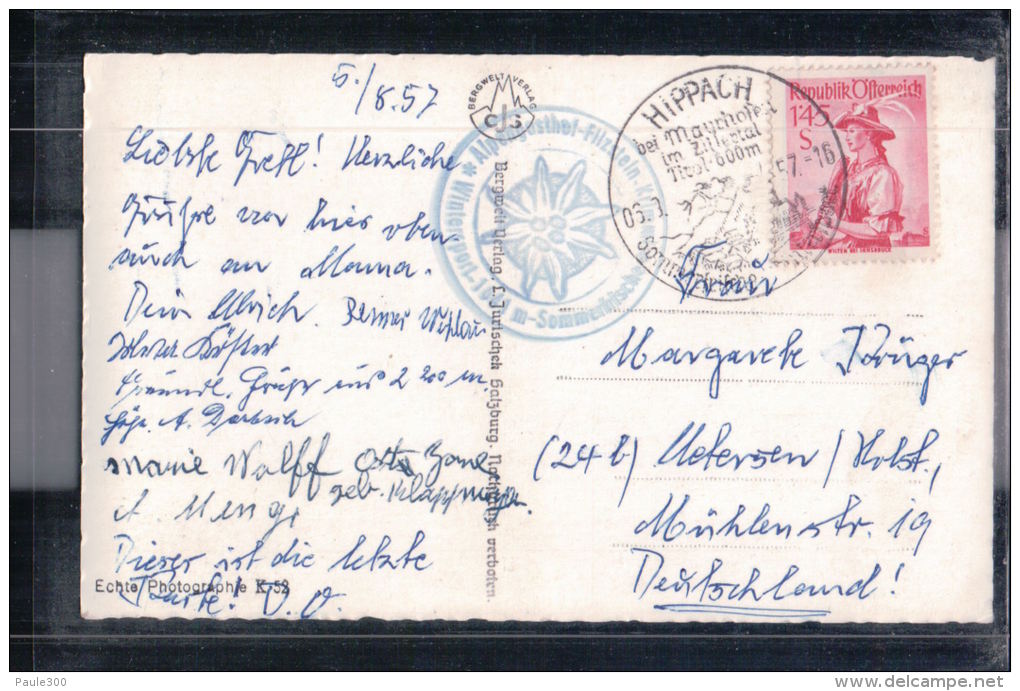 5./8.57
Liebste Gretl! Herzliche
Grüsse von hier oben
auch an Mama.
Dein Ulrich. Werner
Köster
Freundl. Grüße aus 2 200 m
Höhe. A.
Marie Wolff Otto
geb.
A. Menge
Dieser ist die letzte
Karte!
Echte Photographie K 52
BERGWELT VERLAG
CJS
Bergwelt Verlag, C. Jurischek Salzburg. Nachdruck verboten.
Alpengasthof-Filzstein
m-Sommerfrische
HIPPACH
bei Mayrhofen
im Zillertal
Tirol-600m
57.-16
Republik Österreich
1'45
S
WILTEN BEI INNSBRUCK
Frau
Margarete Krüger
(24b) Uetersen/Holst.,
Mühlenstr. 19
Deutschland!
Paule300
delcampe.net